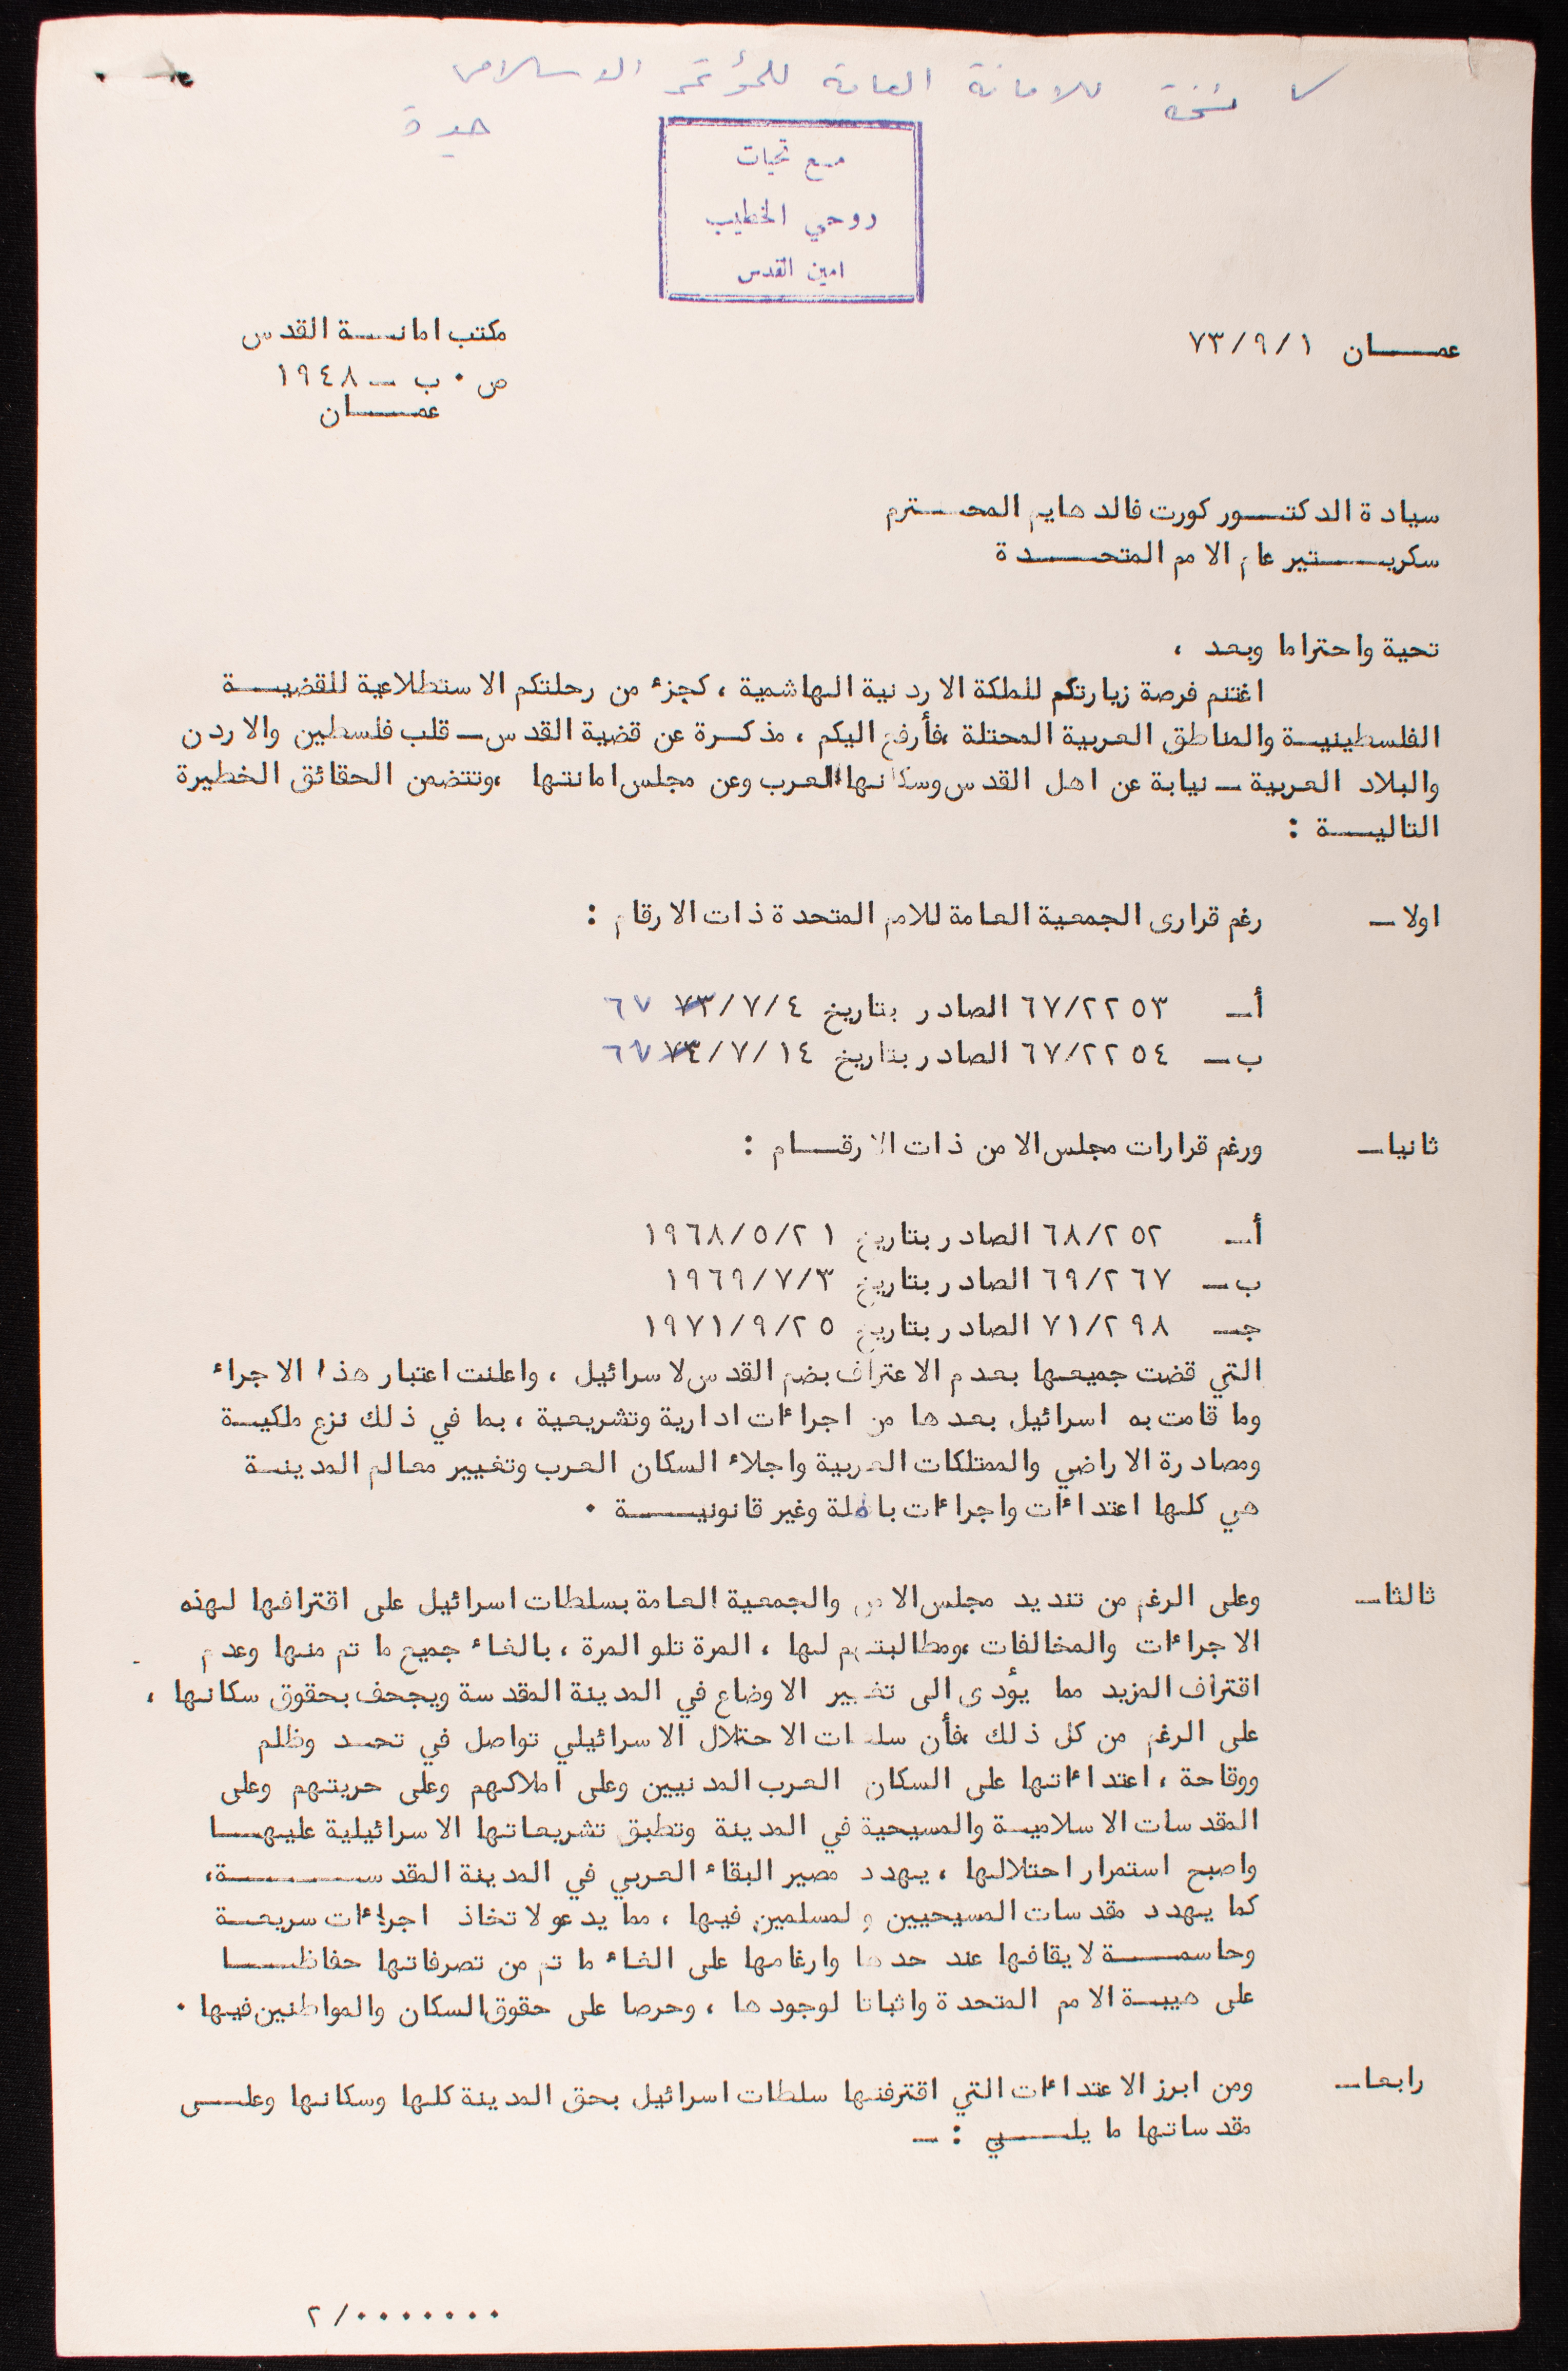 نسخة للامانة العامة للمؤتمر الاسلامي
جدة
مع تحيات
روحي الخطيب
امين القدس
عمـــان ٧٣/٩/١
مكتب امانـــة القدس
ص ٠ ب ــ ١٩٤٨
عمـــان
سيادة الدكتـــور كورت فالدهايم المحـــترم
سكريـــتير عام الامم المتحـــدة
تحية واحتراما وبعد ،
اغتنم فرصة زيارتكم للملكة الاردنية الهاشمية ، كجزء من رحلتكم الاستطلاعية للقضيـــة
الفلسطينيـة والمناطق العربية المحتلة ،فأرفع اليكم ، مذكـرة عن قضية القدس ــ قلب فلسطين والاردن
والبلاد العربية ــ نيابة عن اهل القدس وسكانها العرب وعن مجلس امانتها ،وتتضمن الحقائق الخطيرة
التاليـــة :
اولا ــ رغم قرارى الجمعية العامة للامم المتحدة ذات الارقام :
أ ــ ٦٧/٢٢٥٣ الصادر بتاريخ ٧٣/٧/٤ ٦٧
ب ــ ٦٧/٢٢٥٤ الصادر بتاريخ ٧٣/٧/١٤ ٦٧
ثانيا ــ ورغم قرارات مجلس الامن ذات الارقـــام :
أ ــ ٦٨/٢٥٢ الصادر بتاريخ ١٩٦٨/٥/٢١
ب ــ ٦٩/٢٦٧ الصادر بتاريخ ١٩٦٩/٧/٣
جـ ــ ٧١/٢٩٨ الصادر بتاريخ ١٩٧١/٩/٢٥
التي قضت جميعها بعدم الاعتراف بضم القدس لاسرائيل ، واعلنت اعتبار هذا الاجراء
وما قامت به اسرائيل بعدها من اجراءات ادارية وتشريعية ، بما في ذلك نزع ملكيـــة
ومصادرة الاراضي والممتلكات العربية واجلاء السكان العرب وتغيير معالم المدينـــة
هي كلها اعتداءات واجراءات باطلة وغير قانونيـــة ٠
ثالثا ــ وعلى الرغم من تنديد مجلس الامن والجمعية العامة بسلطات اسرائيل على اقترافها لهذه
الاجراءات والمخالفات ،ومطالبتهم لها ، المرة تلو المرة ، بالغاء جميع ما تم منها وعدم
اقتراف المزيد مما يؤدى الى تغيير الاوضاع في المدينة المقدسة ويجحف بحقوق سكانها ،
على الرغم من كل ذلك ،فأن سلطات الاحتلال الاسرائيلي تواصل في تحـد وظلم
ووقاحة ، اعتداءاتها على السكان العرب المدنيين وعلى املاكهم وعلى حريتهم وعلى
المقدسات الاسلاميـة والمسيحية في المدينة وتطبق تشريعاتها الاسرائيلية عليهـــا
واصبح استمرار احتلالها ، يهدد مصير البقاء العربي في المدينة المقدســـة،
كما يهدد مقدسات المسيحيين والمسلمين فيها ، مما يدعو لاتخاذ اجراءات سريعـــة
وحاسمـــة لايقافها عند حدها وارغامها على الغاء ما تم من تصرفاتها حفاظـــا
على هيبـة الامم المتحدة واثباتا لوجودها ، وحرصا على حقوق السكان والمواطنين فيها ٠
رابعا ــ ومن ابرز الاعتداءات التي اقترفتها سلطات اسرائيل بحق المدينة كلها وسكانها وعلـــى
مقدساتها ما يلـــي : ــ
٢/٠٠٠٠٠٠٠